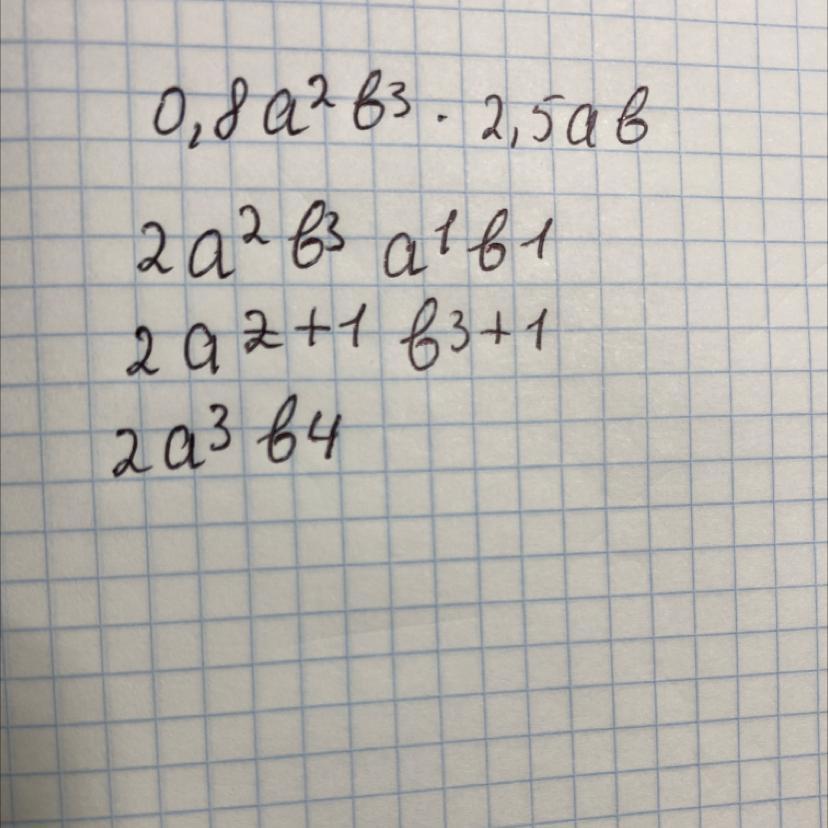 0,8a² b³ · 2,5ab
2a² b³ a¹ b1
2a²⁺¹ b³⁺¹
2a³ b4